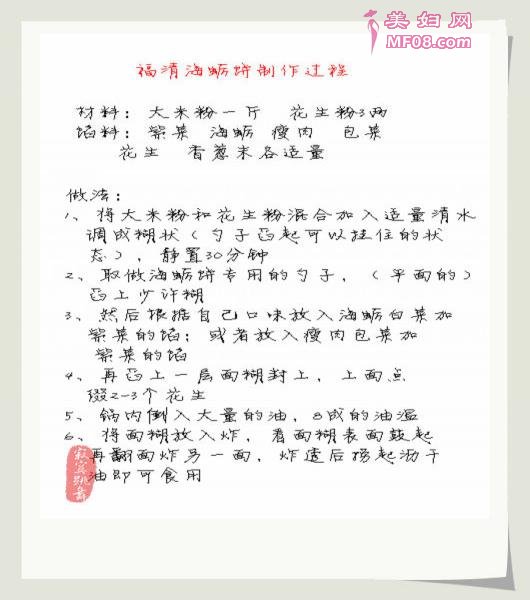 美妇网
MF08.com
福清海蛎饼制作过程
材料：大米粉一斤 花生粉3两
馅料：紫菜 海蛎 瘦肉 包菜
花生 香葱末各适量
做法：
1、将大米粉和花生粉混合加入适量清水
调成糊状（勺子舀起可以挂住的状
态），静置30分钟
2、取做海蛎饼专用的勺子，（平面的）
舀上少许糊
3、然后根据自己口味放入海蛎白菜加
紫菜的馅；或者放入瘦肉包菜加
紫菜的馅
4、再舀上一层面糊封上，上面点
缀2-3个花生
5、锅内倒入大量的油，8成的油温
6、将面糊放入炸，看面糊表面鼓起
再翻面炸另一面，炸透后捞起沥干
油即可食用
寂寞跳舞